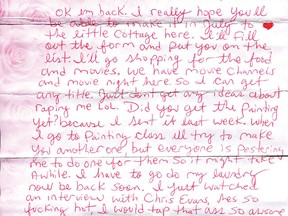 OK im back. I really hope you'll
be able to make it in July to
the little Cottage here. I'll Fill
out the form and put you on the
list. I'll go shopping for the food
and movies, we have movie Channels
and movie night here so I can get
any title. Just don't get any ideas about
raping me LoL. Did you get the Painting
yet because I sent it last week. When
I go to Painting class ill try to make
you another one, but everyone is pestering
me to do one for them so it might take
awhile. I have to go do my laundry
now be back soon. I just watched
an interview with Chris Evans, hes so
fucking hot I would tap that ass so